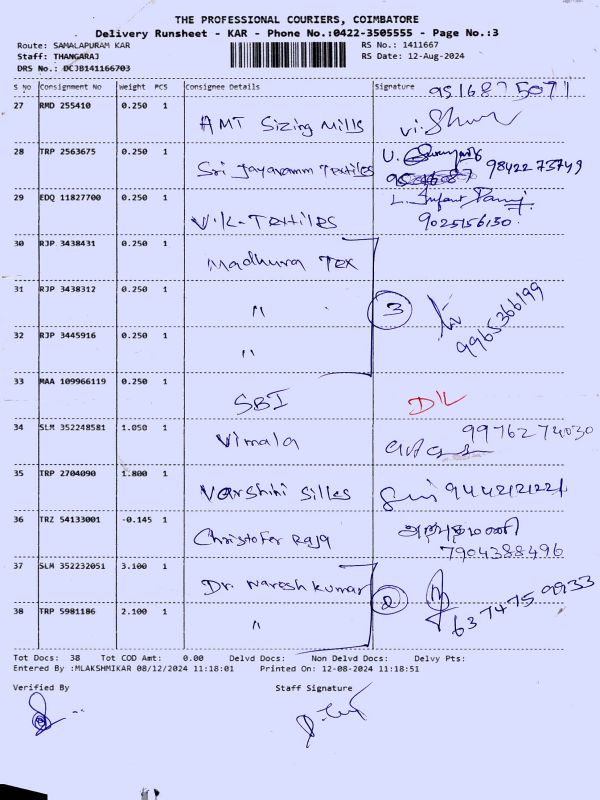 THE PROFESSIONAL COURIERS, COIMBATORE
Delivery Runsheet - KAR - Phone No.:0422-3505555 - Page No.:3
Route: SAMALAPURAM KAR RS No.: 1411667
Staff: THANGARAJ RS Date: 12-Aug-2024
DRS No.: DCJB141166703
S No Consignment No Weight PCS Consignee Details Signature 9516875071
27 RMD 255410 0.250 1 AMT Sizing Mills
28 TRP 2563675 0.250 1 Sri Jayaramm Textiles 98422 73749
29 EDQ 11827700 0.250 1 V.K. Textiles 9025156130
30 RJP 3438431 0.250 1 Madhura Tex
31 RJP 3438312 0.250 1 " 3 9965366199
32 RJP 3445916 0.250 1 "
33 MAA 109966119 0.250 1 SBI D/L
34 SLM 352248581 1.050 1 Vimala 9976274030
35 TRP 2704090 1.800 1 Varshini Silks 9442121221
36 TRZ 54133001 -0.145 1 Christofer Raja அற்புதமணி
7904388496
37 SLM 352232051 3.100 1 Dr. Naresh kumar 2
38 TRP 5981186 2.100 1 " 637475 9933
Tot Docs: 38 Tot COD Amt: 0.00 Delvd Docs: Non Delvd Docs: Delvy Pts:
Entered By :MLAKSHMIKAR 08/12/2024 11:18:01 Printed On: 12-08-2024 11:18:51
Verified By Staff Signature